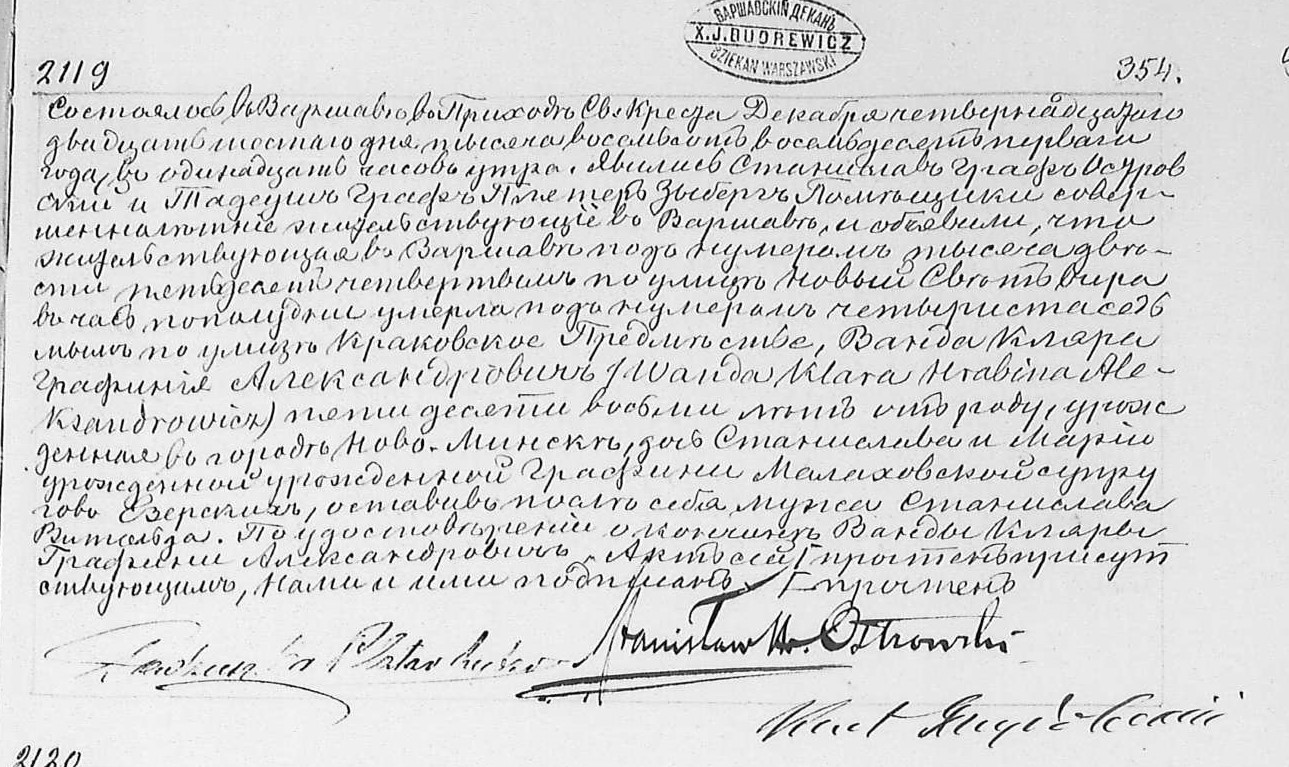 ВАРШАВСКІЙ ДЕКАНЪ
X. J. DUDREWICZ
DZIEKAN WARSZAWSKI
2119
354.
Состоялось въ Варшавѣ въ Приходѣ Св. Креста Декабря четырнадцатаго
двадцать шестаго дня тысяча восемьсотъ восемьдесятъ перваго
года, въ одинадцать часовъ утра. Явились Станиславъ Графъ Остров
скій и Тадеушъ Графъ Плятеръ Зыбергъ Помѣщики совер-
шеннолѣтніе жительствующіе въ Варшавѣ, и объявили, что
жительствующая въ Варшавѣ подъ нумеромъ тысяча двѣ-
сти пятьдесятъ четвертымъ по улицѣ Новый Свѣтъ вчера
въ часъ пополудни умерла подъ нумеромъ четыриста седь
мымъ по улицѣ Краковское Предмѣстье, Ванда Кляра
Графиня Александровичъ /Wanda Klara Hrabina Ale-
ksandrowicz) пяти десяти восьми лѣтъ отъ роду, урож
денная въ городѣ Ново-Минскѣ, дочь Станислава и Маріи
урожденной урожденной Графини Малаховской супру
говъ Езерскихъ, оставивъ послѣ себя мужа Станислава
Витольда. По удостовѣреніи о кончинѣ Ванды Кляры
Графини Александровичъ, Актъ сей прочтенъ присут
ствующимъ, Нами и ими подписанъ. прочтенъ
Stanisław Hr. Ostrowski
2120